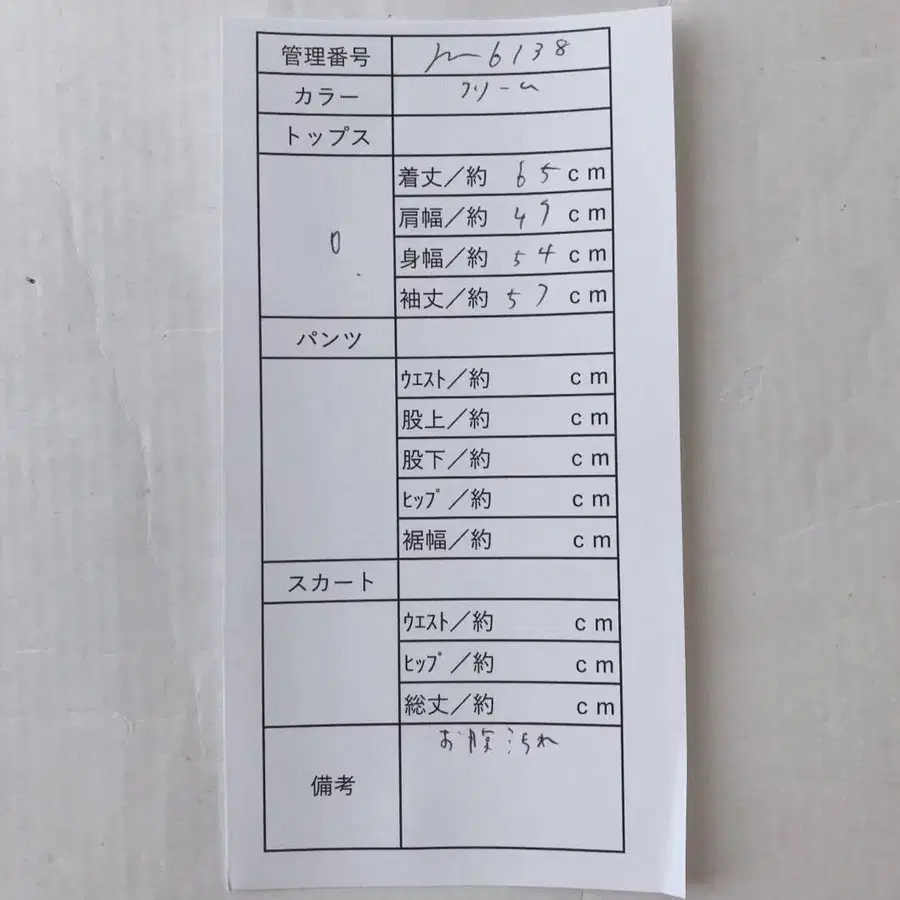 管理番号 m6138
カラー クリーム
トップス
着丈／約 65 cm
肩幅／約 49 cm
0 身幅／約 54 cm
袖丈／約 57 cm
パンツ
ｳｴｽﾄ／約 cm
股上／約 cm
股下／約 cm
ﾋｯﾌﾟ／約 cm
裾幅／約 cm
スカート
ｳｴｽﾄ／約 cm
ﾋｯﾌﾟ／約 cm
総丈／約 cm
お腹汚れ
備考